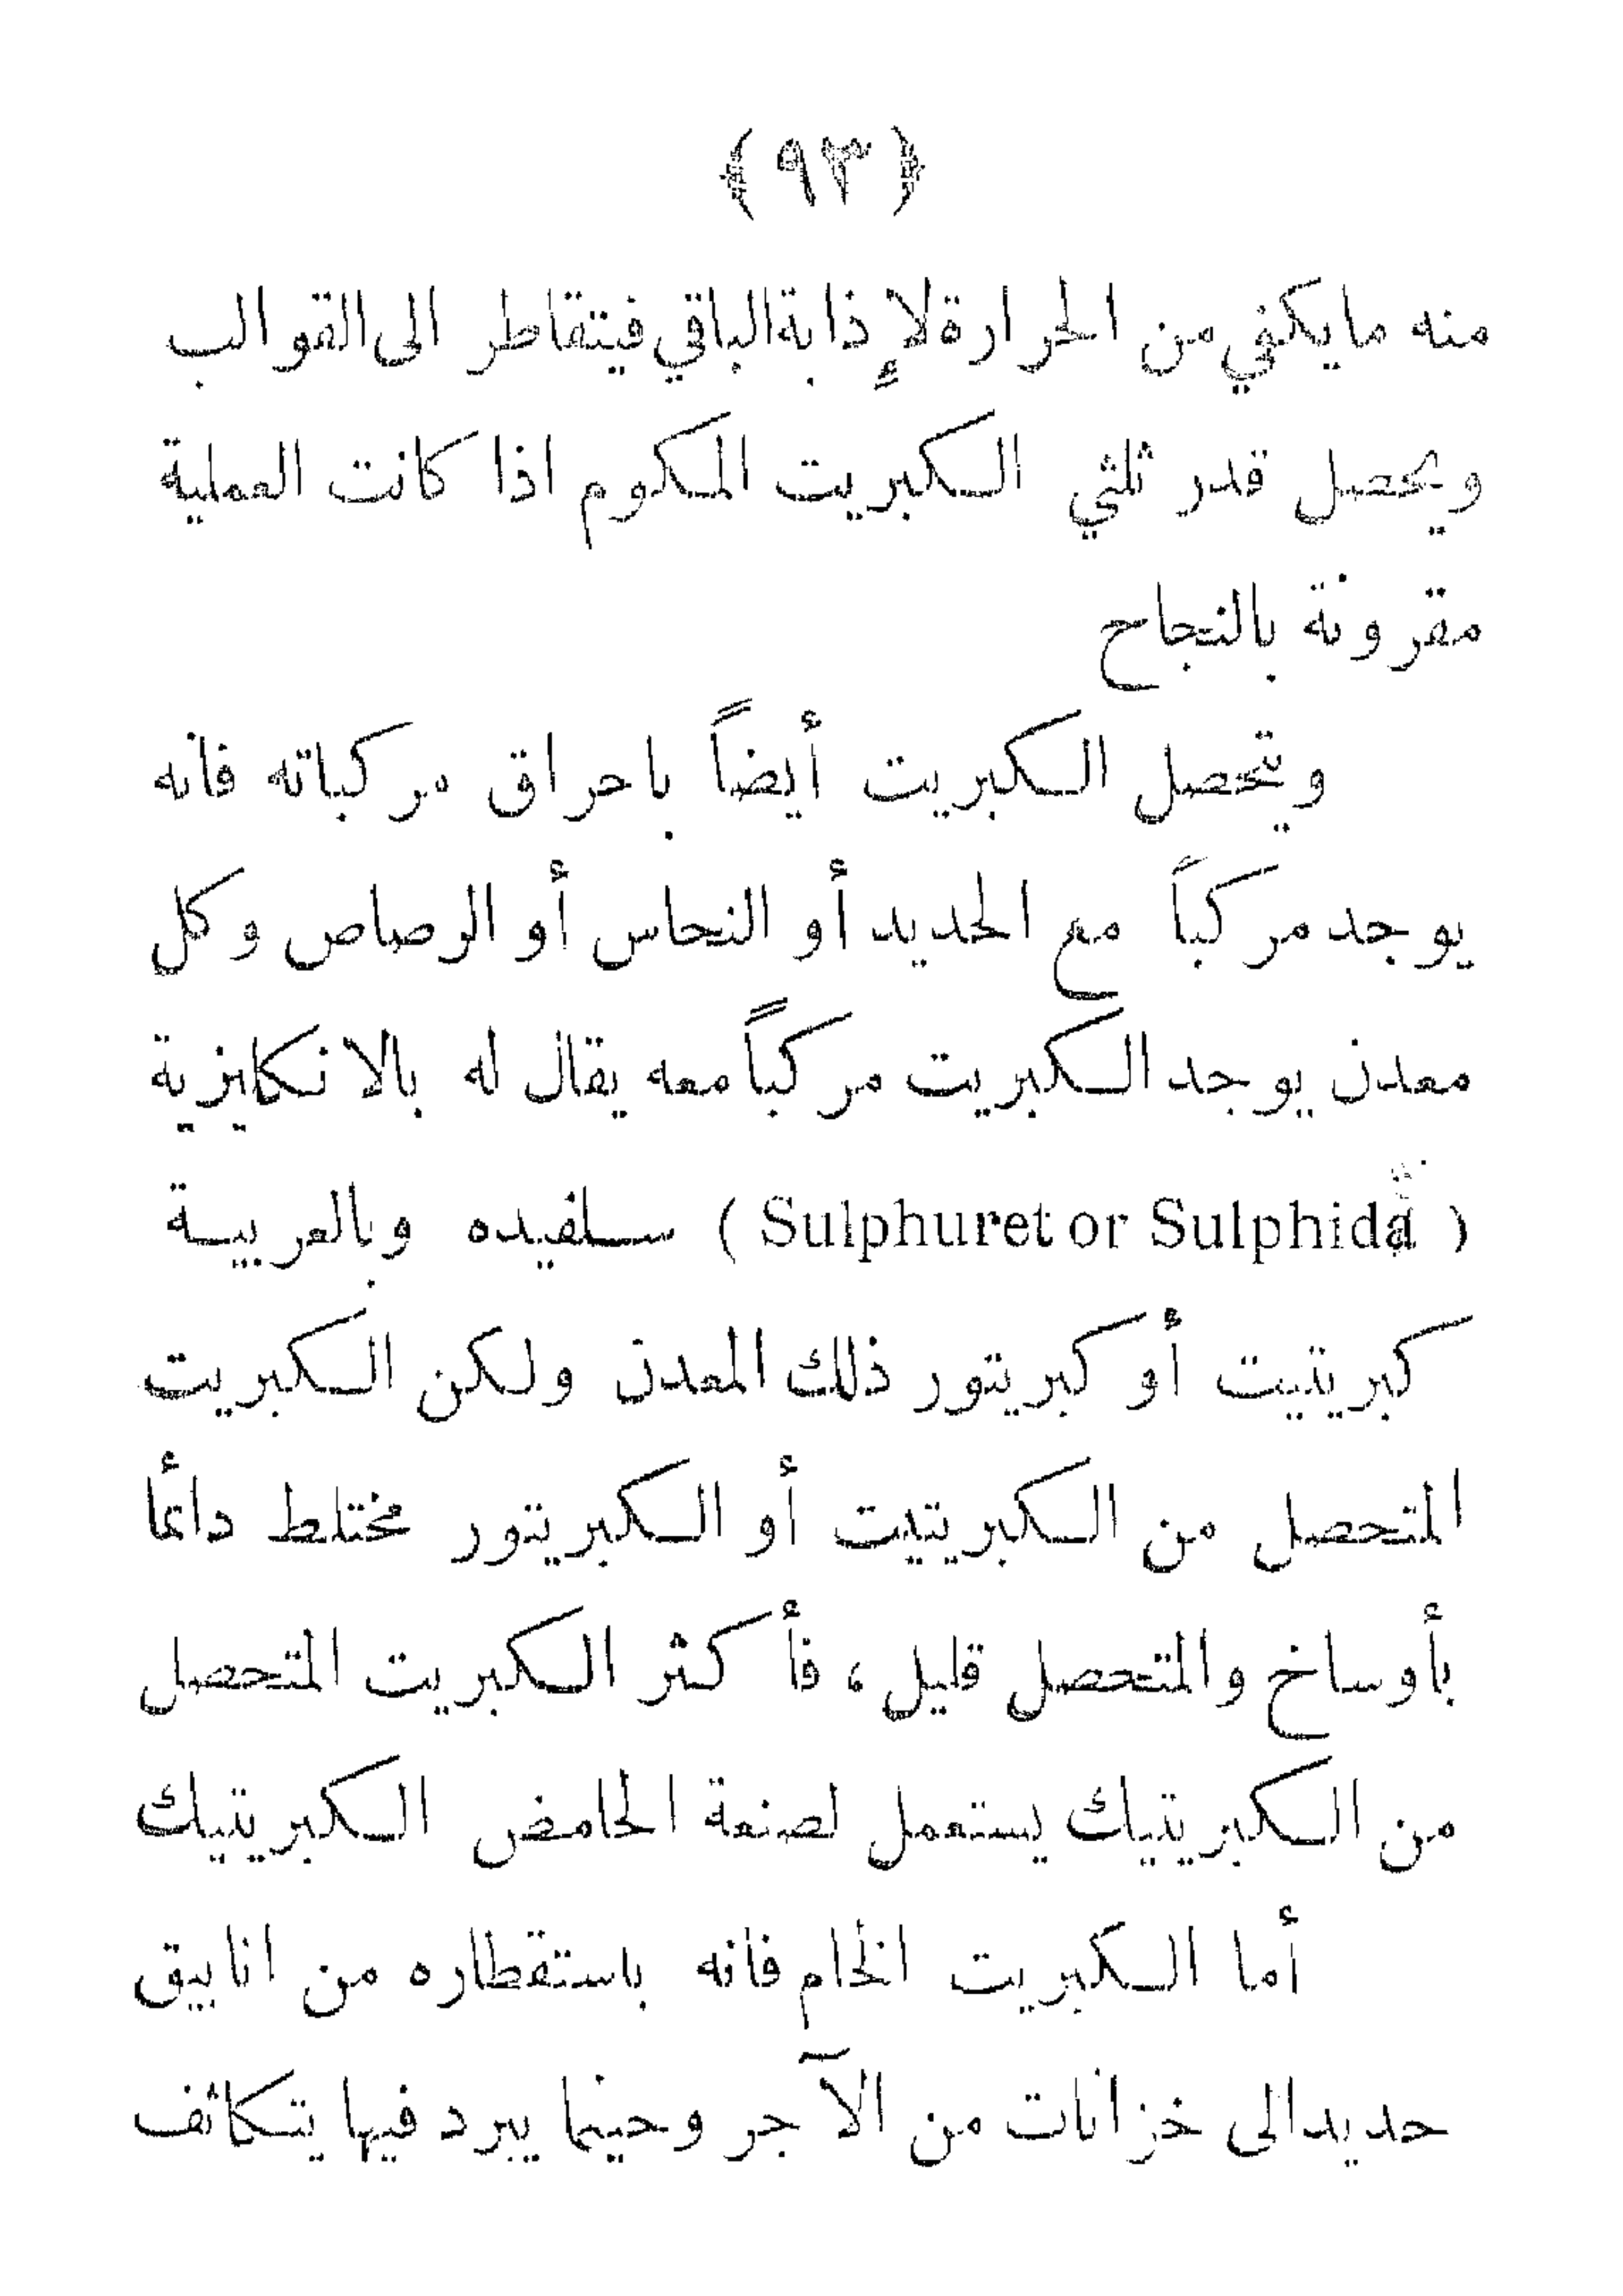 ﴿ ٩٣ ﴾
منه ما يكفي من الحرارة لإذابة الباقي فيتقاطر الى القوالب
ويحصل قدر ثلثي الكبريت المكوم اذا كانت العملية
مقرونة بالنجاح
ويتحصل الكبريت أيضاً باحراق مركباته فانه
يوجد مركباً مع الحديد أو النحاس أو الرصاص وكل
معدن يوجد الكبريت مركباً معه يقال له بالانكليزية
( Sulphuret or Sulphida ) سلفيده وبالعربية
كبريتيت أو كبريتور ذلك المعدن ولكن الكبريت
المتحصل من الكبريتيت أو الكبريتور مختلط دائما
بأوساخ والمتحصل قليل ، فأكثر الكبريت المتحصل
من الكبريتيك يستعمل لصنعة الحامض الكبريتيك
أما الكبريت الخام فانه باستقطاره من انابيق
حديد الى خزانات من الآجر وحينما يبرد فيها يتكاثف